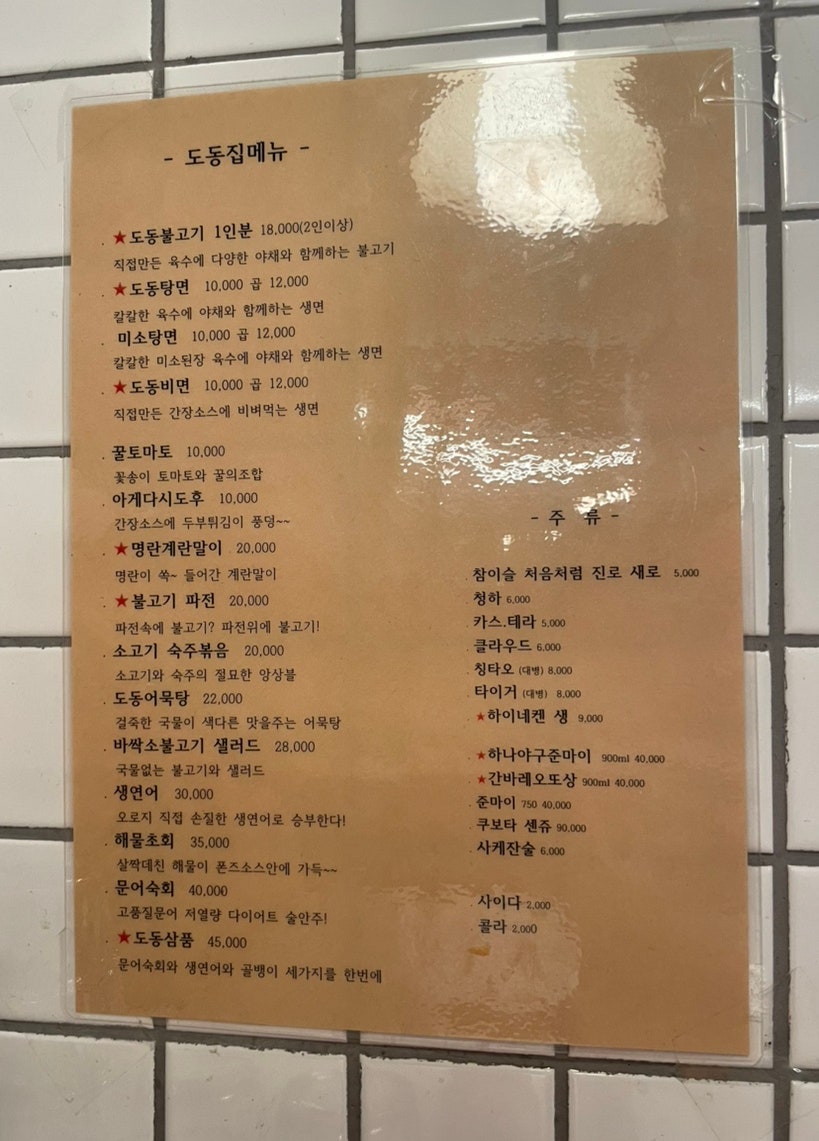 - 도동집메뉴 -
. ★도동불고기 1인분 18,000(2인이상)
직접만든 육수에 다양한 야채와 함께하는 불고기
. ★도동탕면 10,000 곱 12,000
칼칼한 육수에 야채와 함께하는 생면
. 미소탕면 10,000 곱 12,000
칼칼한 미소된장 육수에 야채와 함께하는 생면
. ★도동비면 10,000 곱 12,000
직접만든 간장소스에 비벼먹는 생면
. 꿀토마토 10,000
꽃송이 토마토와 꿀의조합
. 아게다시도후 10,000
간장소스에 두부튀김이 풍덩~~
. ★명란계란말이 20,000
명란이 쏙~ 들어간 계란말이
. ★불고기 파전 20,000
파전속에 불고기? 파전위에 불고기!
. 소고기 숙주볶음 20,000
소고기와 숙주의 절묘한 앙상블
. 도동어묵탕 22,000
걸죽한 국물이 색다른 맛을주는 어묵탕
. 바싹소불고기 샐러드 28,000
국물없는 불고기와 샐러드
. 생연어 30,000
오로지 직접 손질한 생연어로 승부한다!
. 해물초회 35,000
살짝데친 해물이 폰즈소스안에 가득~~
. 문어숙회 40,000
고품질문어 저열량 다이어트 술안주!
. ★도동삼품 45,000
문어숙회와 생연어와 골뱅이 세가지를 한번에
- 주 류 -
. 참이슬 처음처럼 진로 새로 5,000
. 청하 6,000
. 카스.테라 5,000
. 클라우드 6,000
. 칭타오 (대병) 8,000
. 타이거 (대병) 8,000
. ★하이네켄 생 9,000
. ★하나야구준마이 900ml 40,000
. ★간바레오또상 900ml 40,000
. 준마이 750 40,000
. 쿠보타 센쥬 90,000
. 사케잔술 6,000
. 사이다 2,000
. 콜라 2,000